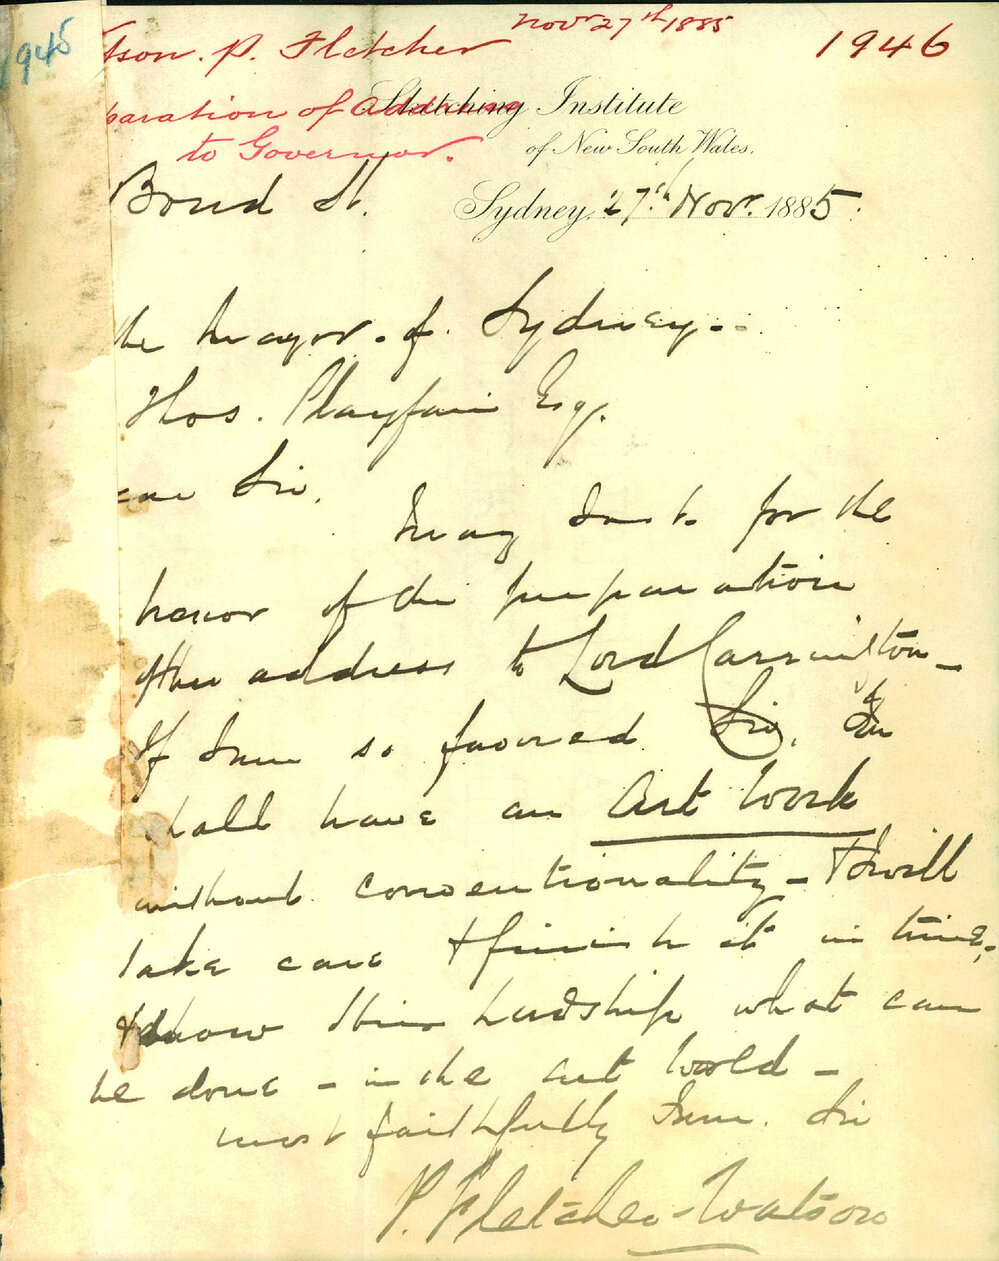 1945
tson. P. Fletcher Novr 27th 1885
1946
paration of address
to Governor.
Sketching Institute
of New South Wales.
Bond St. Sydney, 27th Novr. 1885.
the Mayor. of. Sydney -
Thos. Playfair Esq.
ear Sir,
May I ask for the
honor of the preparation
of the address to Lord Carrington -
If I am so favored Sir,
shall have an Art Work
without conventionality - & I will
take care & finish it in time,
& show their Lordship what can
be done - in the art world -
most faithfully I am. Sir
P. Fletcher-Watson